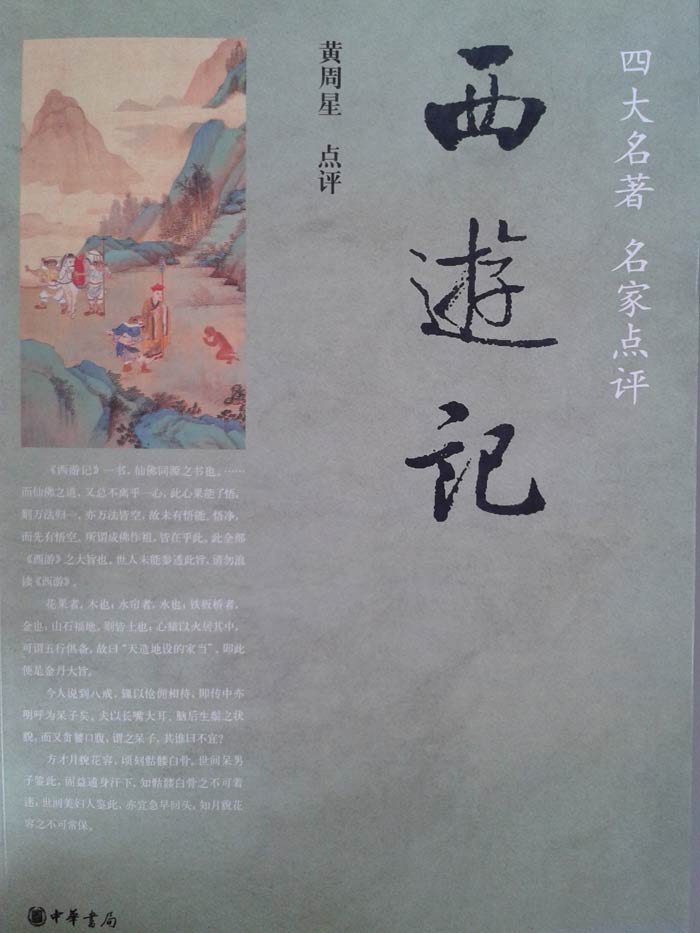 四大名著 名家点评
西遊记
黄周星 点评
《西游记》一书，仙佛同源之书也。……
而仙佛之道，又总不离乎一心，此心果能了悟，
则万法归一，亦万法皆空，故未有悟能、悟净，
而先有悟空。所谓成佛作祖，皆在乎此。此全部
《西游》之大旨也。世人未能参透此旨，请勿浪
读《西游》。
花果者，木也；水帘者，水也；铁板桥者，
金也；山石福地，则皆土也；心猿以火居其中，
可谓五行俱备。故曰“天造地设的家当”，即此
便是金丹大旨。
今人说到八戒，辄以伧佣相待，即传中亦
明呼为呆子矣。夫以长嘴大耳、脑后生鬃之状
貌，而又贪饕口腹，谓之呆子，其谁曰不宜？
方才月貌花容，顷刻骷髅白骨。世间呆男
子鉴此，固益通身汗下，知骷髅白骨之不可着
迷；世间美妇人鉴此，亦宜急早回头，知月貌花
容之不可常保。
中華書局